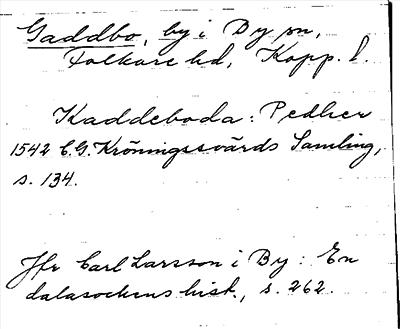 Gaddbo, by i By sn,
Folkare hd, Kopp. l.
Kaddeboda: Pedher
1542 C.G. Kröningssvärds Samling,
s. 134.
Jfr Carl Larsson i By: En
dalasockens hist., s. 262.